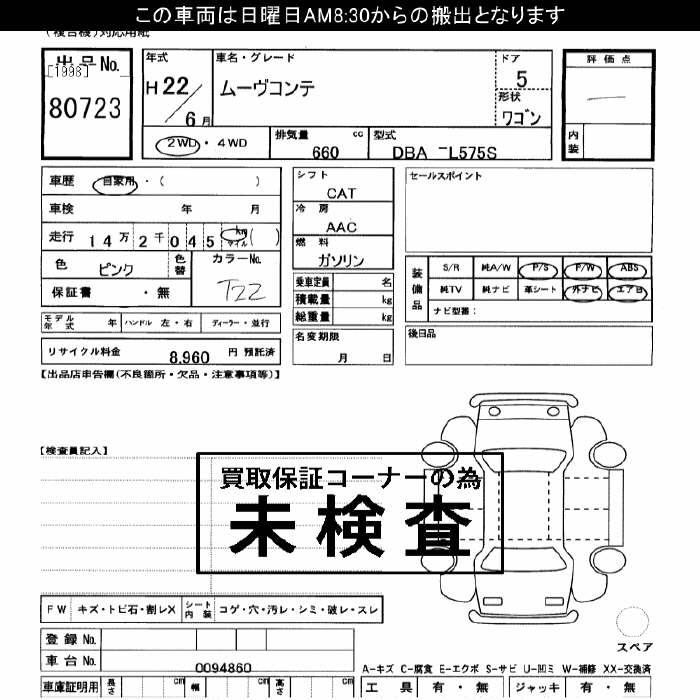 この車両は日曜日AM8:30からの搬出となります
(複合機)対応用紙
出品No.
[1998]
80723
年式
H 22 / 6 月
車名・グレード
ムーヴコンテ
ドア
5
形状
ワゴン
評価点
内装
2WD・4WD
排気量 cc
660
型式
DBA -L575S
車歴 自家用・( )
車検 年 月
走行 14万2千045 km マイル ( )
色 ピンク 色替
カラーNo.
T22
保証書 ・無
シフト
CAT
冷房
AAC
燃料
ガソリン
乗車定員 名
積載量 kg
総重量 kg
セールスポイント
装備品
S/R 純A/W P/S P/W ABS
純TV 純ナビ 革シート 外ナビ エアB
ナビ型番:
モデル年式 年 ハンドル 左・右 ディーラー・並行
リサイクル料金 8,960 円 預託済
名変期限
月 日
後日品
【出品店申告欄(不良箇所・欠品・注意事項等)】
【検査員記入】
買取保証コーナーの為
未検査
スペア
FW キズ・トビ石・割レX シート内装 コゲ・穴・汚レ・シミ・破レ・スレ
登録No.
車台No. 0094860
A-キズ C-腐食 E-エクボ S-サビ U-凹ミ W-補修 XX-交換済
車庫証明用 長さ cm 幅 cm 高さ cm
工具 有・無 ジャッキ 有・無